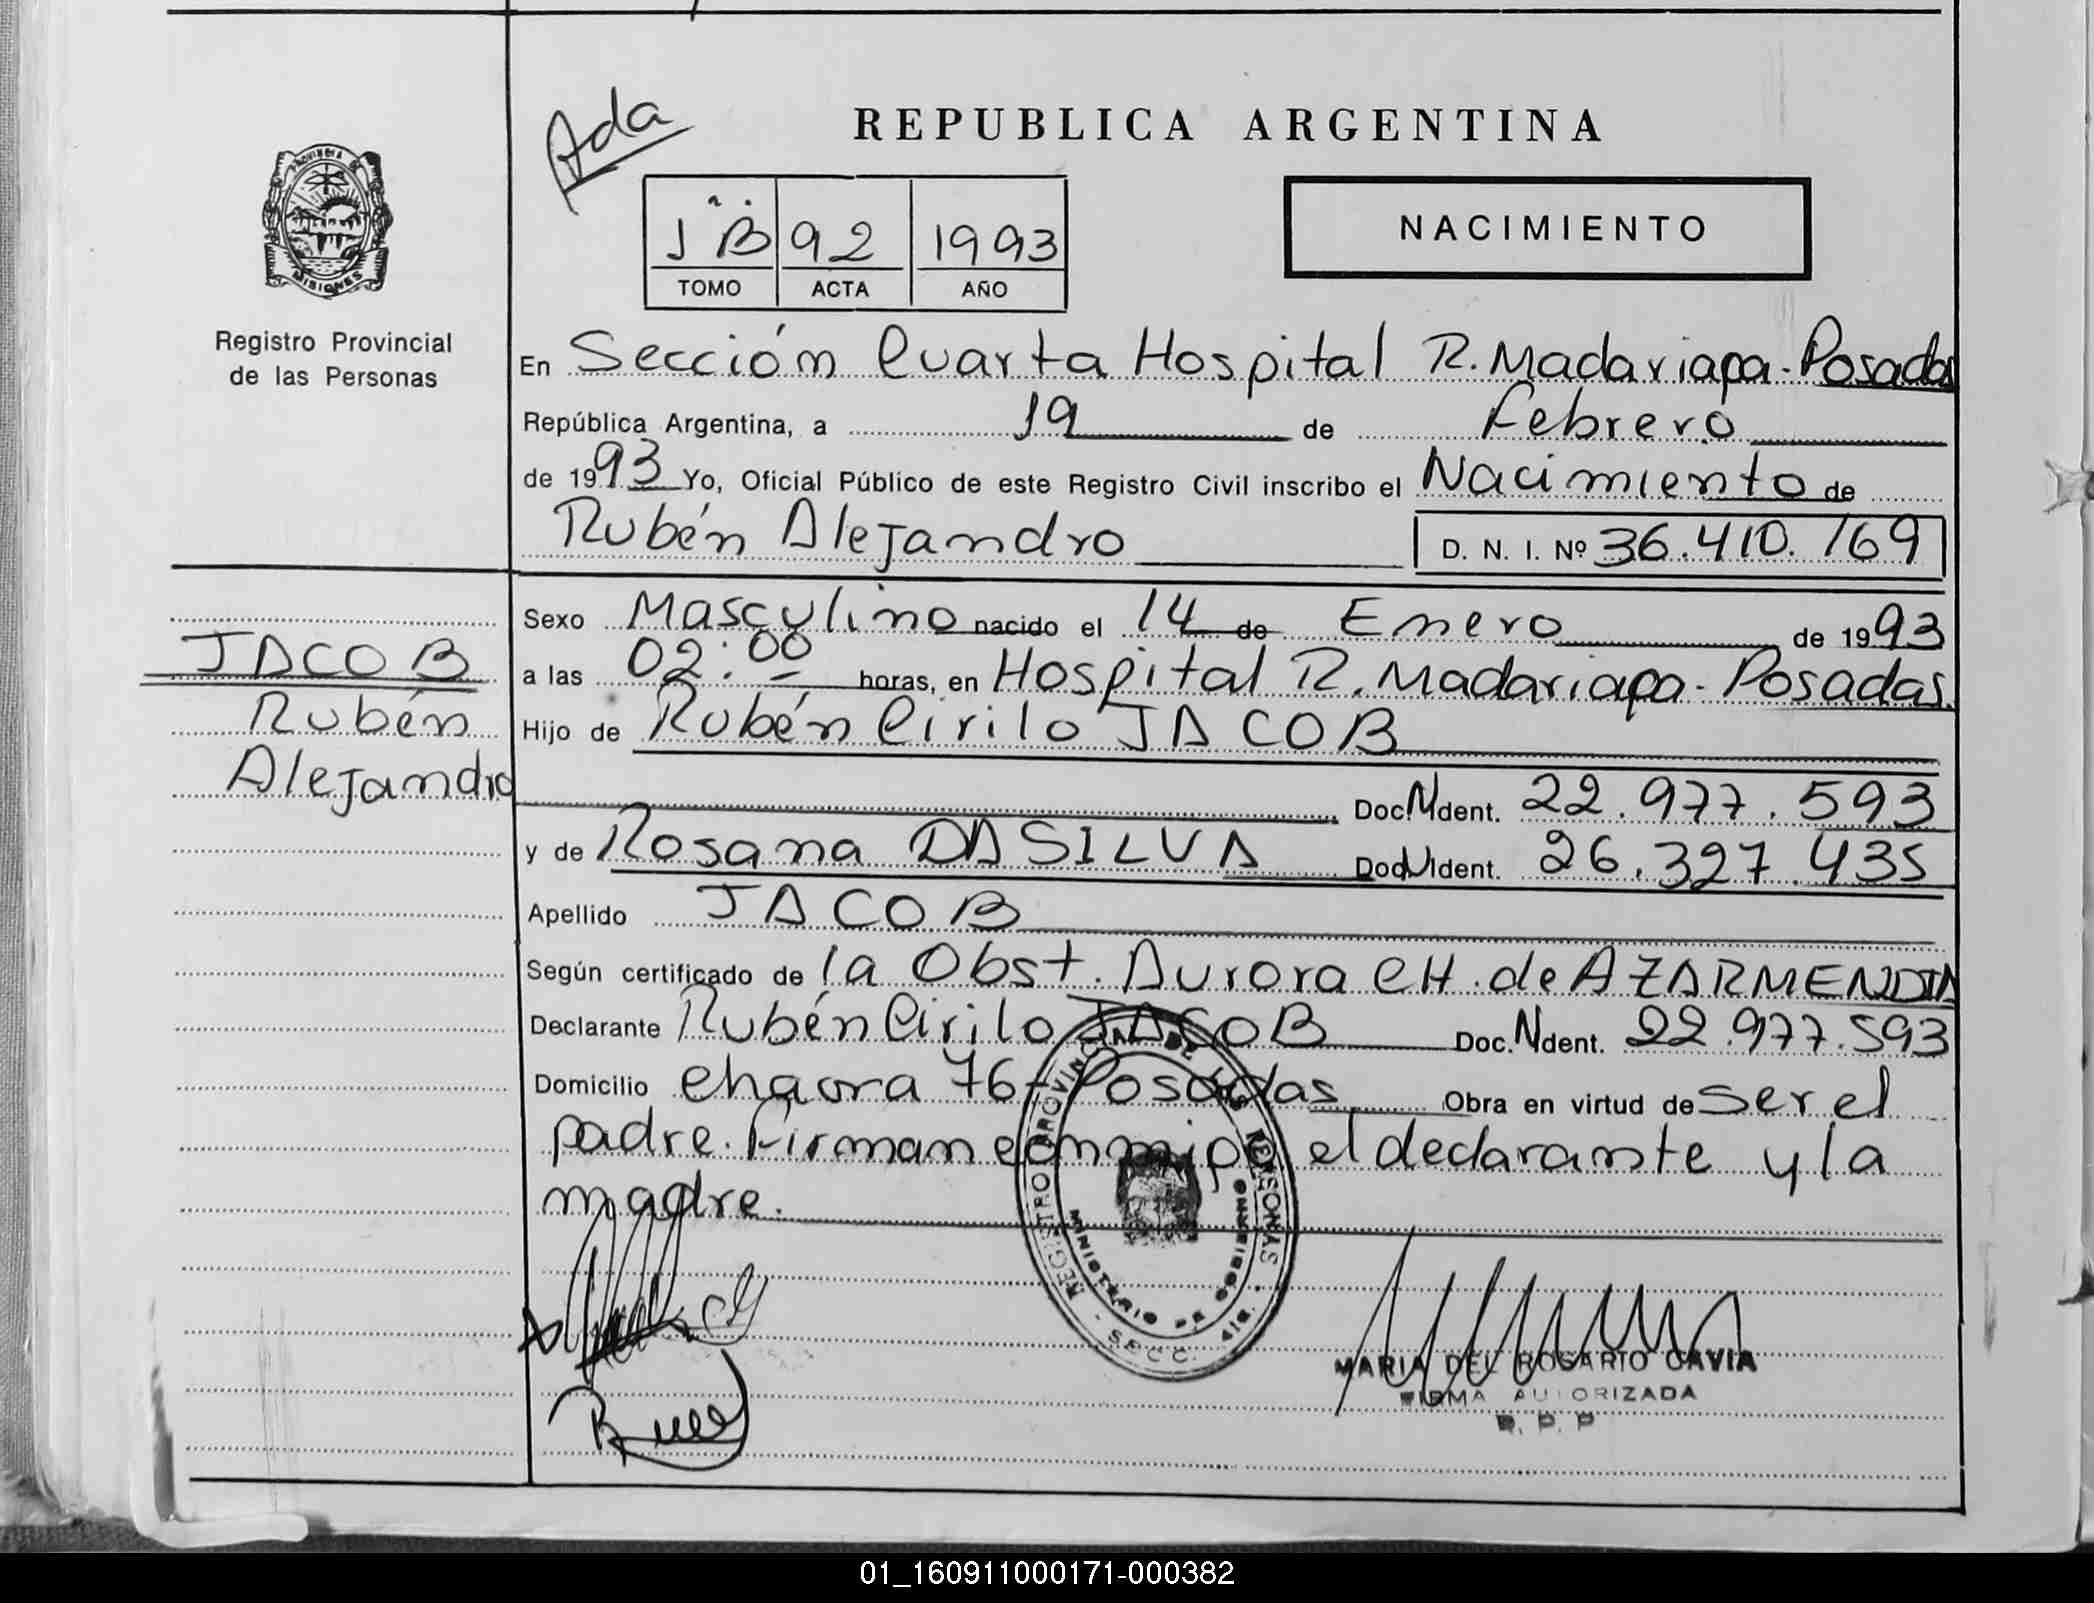 Ada
REPUBLICA ARGENTINA
PROVINCIA DE
MISIONES
1 "B" 92 1993
TOMO ACTA AÑO
NACIMIENTO
Registro Provincial
de las Personas
En Sección Cuarta Hospital R. Madariaga - Posadas
República Argentina, a 19 de Febrero
de 1993 Yo, Oficial Público de este Registro Civil inscribo el Nacimiento de
Rubén Alejandro D. N. I. Nº 36.410.169
Sexo Masculino nacido el 14 de Enero de 1993
a las 02:00 horas, en Hospital R. Madariaga - Posadas.
JACOB
Rubén
Alejandro
Hijo de Rubén Cirilo JACOB
Doc. N Ident. 22.977.593
y de Rosana DA SILVA Doc. N Ident. 26.327.435
Apellido JACOB
Según certificado de la Obst. Aurora CH. de AZARMENDIA
Declarante Rubén Cirilo JACOB Doc. N Ident. 22.977.593
Domicilio Chacra 76 - Posadas Obra en virtud de ser el
padre. Firman conmigo el declarante y la
madre.
REGISTRO PROVINCIAL DE LAS PERSONAS
MINISTERIO DE GOBIERNO
SECC. 4ta.
MARIA DEL ROSARIO GAVIA
FIRMA AUTORIZADA
R. P. P
01_160911000171-000382